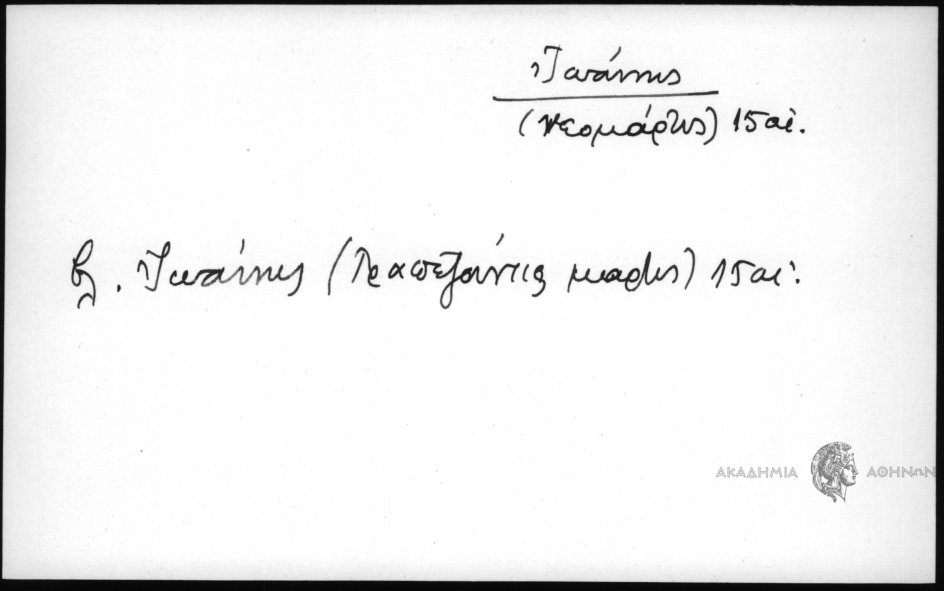 Ἰωάννης
(νεομάρτυς) 15 αἰ.
βλ. Ἰωάννης (Τραπεζούντιος μάρτυς) 15 αἰ.
ΑΚΑΔΗΜΙΑ ΑΘΗΝΩΝ